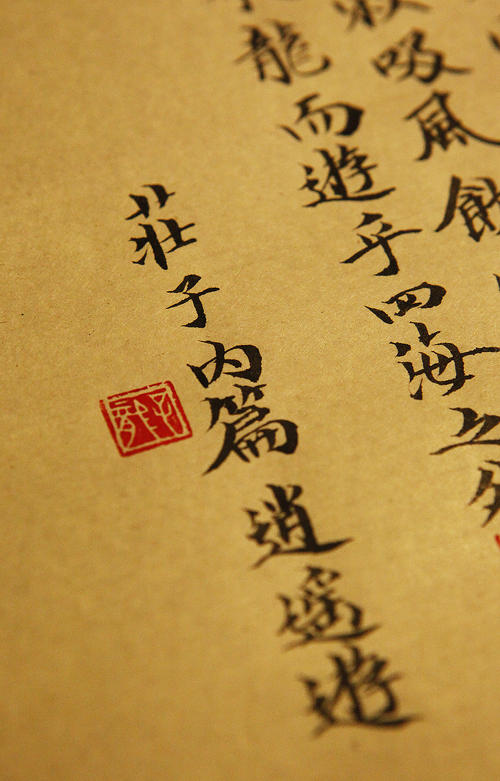 吸風飲
龍而遊乎四海之外
莊子内篇逍遙遊